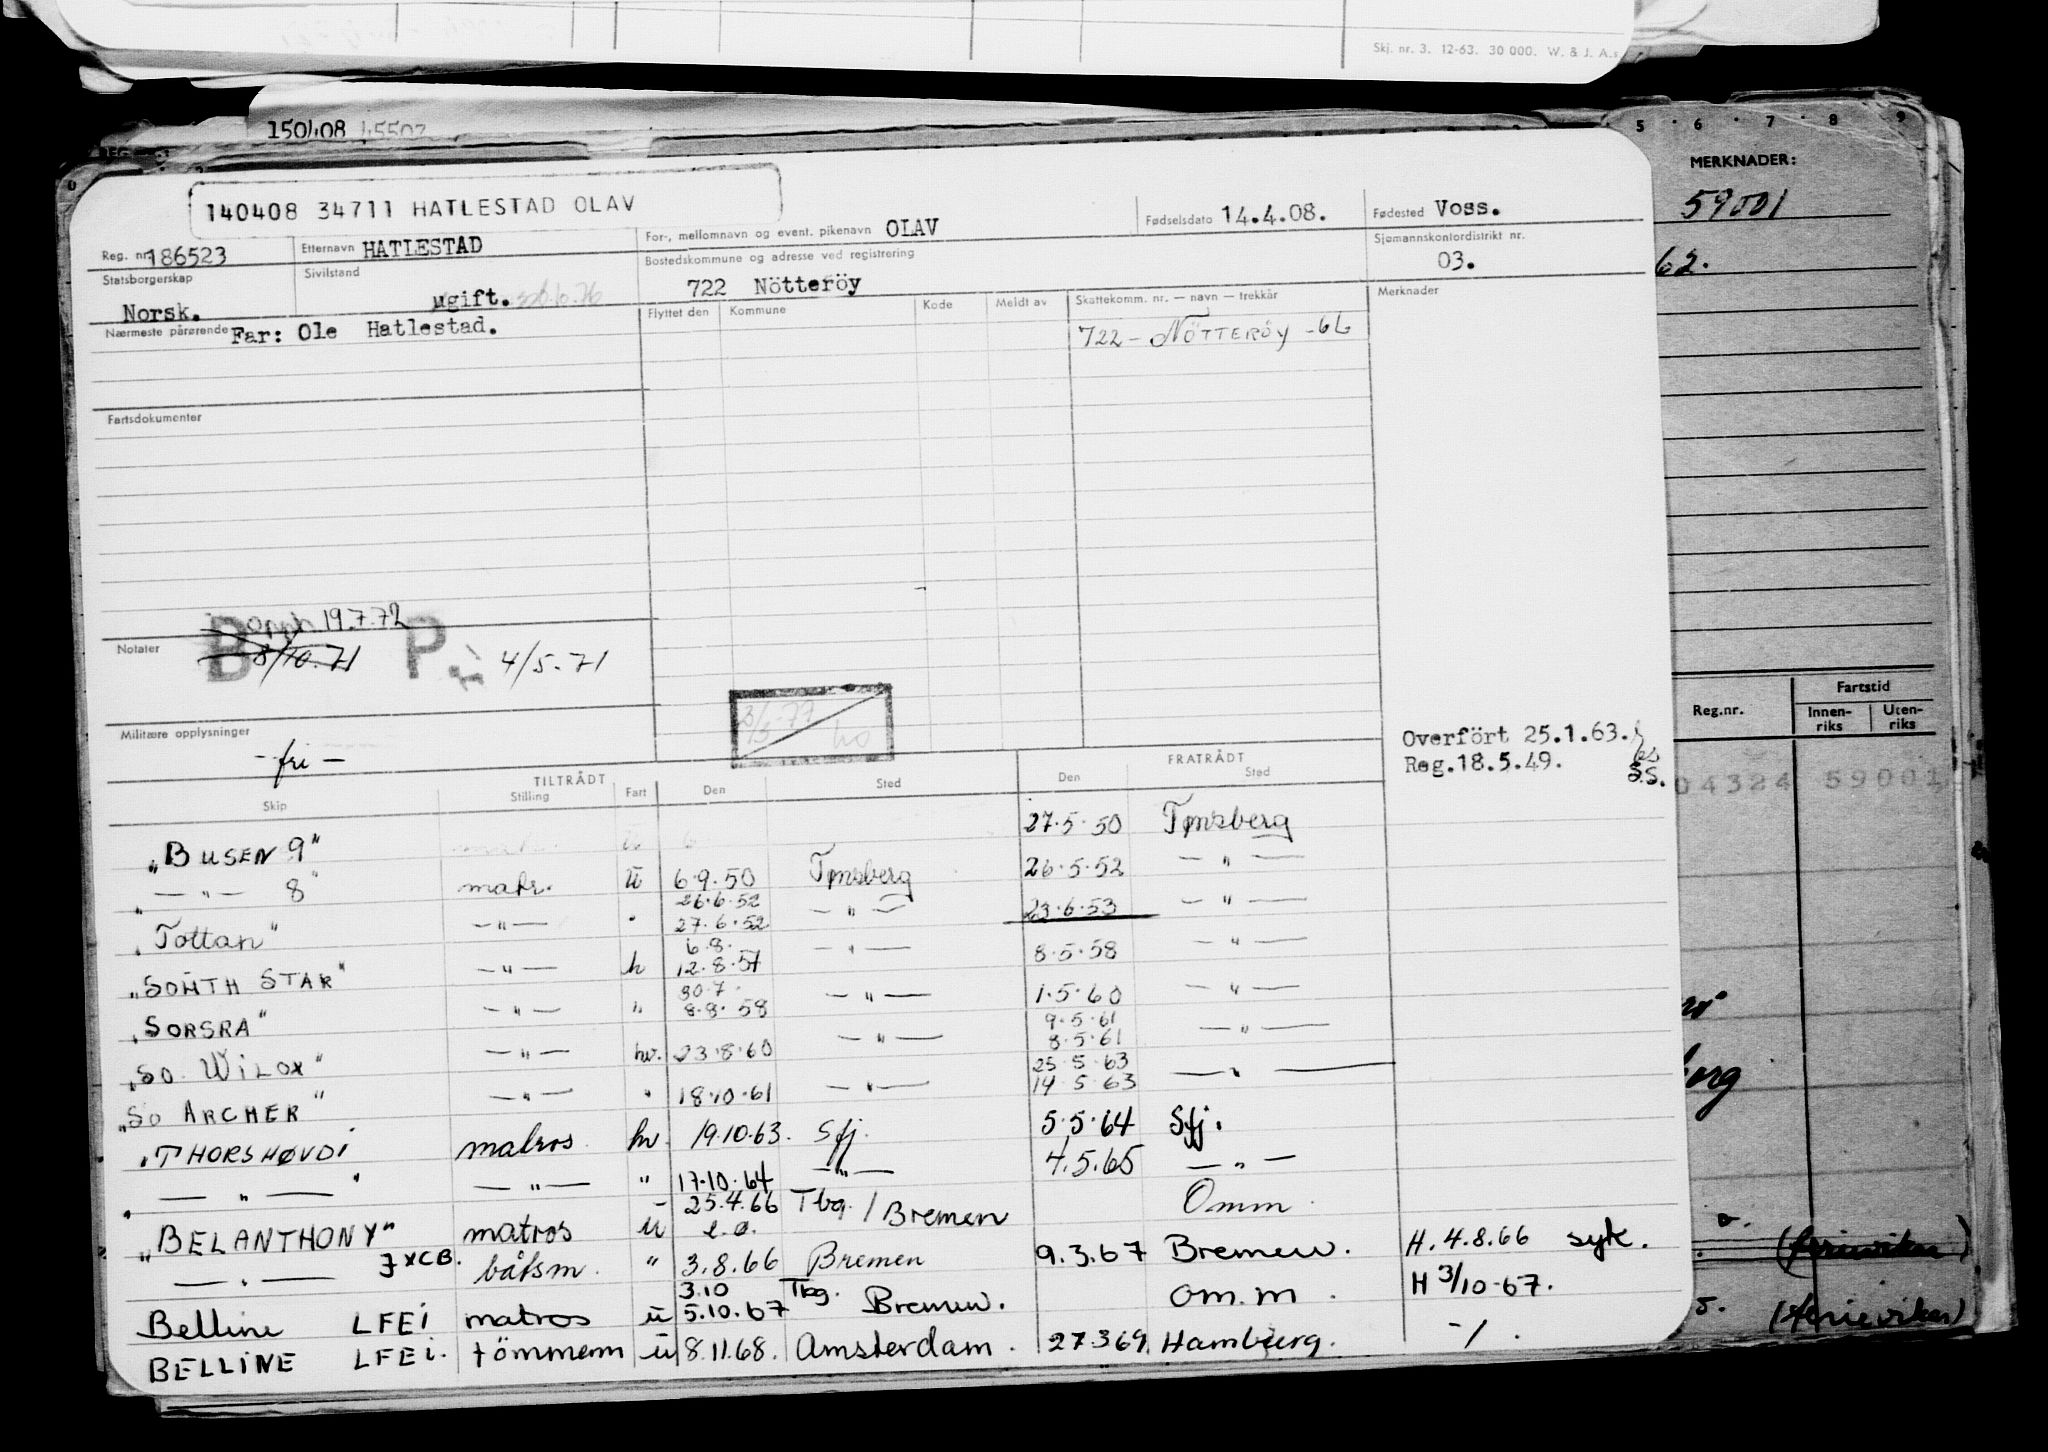 Skj. nr. 3. 12-63. 30 000. W. & J. A.s
150408 45507
5 · 6 · 7 · 8 9
MERKNADER:
59001
62.
140408 34711 HATLESTAD OLAV
Reg. nr. 186523 Etternavn HATLESTAD For-, mellomnavn og event. pikenavn OLAV Fødselsdato 14.4.08. Fødested Voss.
Statsborgerskap Norsk. Sivilstand ugift. Bostedskommune og adresse ved registrering 722 Nötteröy Sjømannskontordistrikt nr. 03.
Nærmeste pårørende Far: Ole Hatlestad. Flyttet den Kommune Kode Meldt av Skattekomm. nr. — navn — trekkår Merknader
722 - NÖTTERÖY -66
Fartsdokumenter
opph. 19.7.72
Notater B 8/10.71 P 4/5.71
Militære opplysninger
- fri -
Overført 25.1.63.
Reg.18.5.49. S.S.
Reg.nr. Fartstid
Innen-riks Uten-riks
04324 59001
TILTRÅDT FRATRÅDT
Skip Stilling Fart Den Sted Den Sted
"BUSEN 9" 27.5.50 Tønsberg
— " — 8" matr. u 6.9.50 Tønsberg 26.5.52 — " —
26.6.52
"Tottan" — " — " 27.6.52 — " — 23.6.53 — " —
6.8.
"SOUTH STAR" — " — h 12.8.57 — " — 8.5.58 — " —
30.7.
"SORSRA" — " — " 8.8.58 — " — 1.5.60 — " —
9.5.61
"SO. WILOX" — " — hv. 23.8.60 — " — 8.5.61 — " —
25.5.63
"SO ARCHER" — " — " 18.10.61 — " — 14.5.63 — " —
"THORSHØVDI matros hv 19.10.63. Sfj. 5.5.64 Sfj.
— " — " — " — " 17.10.64 — " — 4.5.65 — " —
25.4.66 Tbg. / Bremen
"BELANTHONY" matros u e.o. Omm
— " — JXCB. båtsm. " 3.8.66 Bremen 9.3.67 Bremen. H. 4.8.66 syk.
3.10 Tbg.
Belline LFEi matros u 5.10.67 Bremen. om.m. H 3/10-67.
BELLINE LFEi. tömmerm u 8.11.68. Amsterdam. 27.3.69 Hamburg. -/.